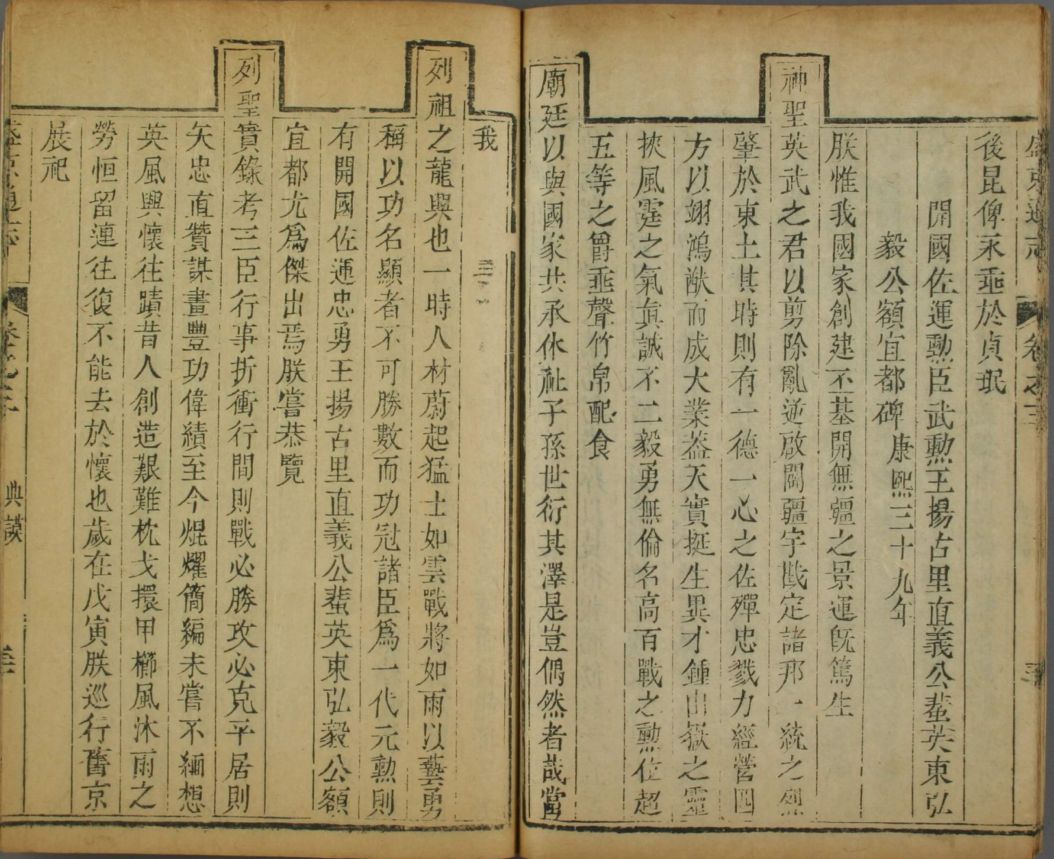 盛京通志 卷之三
後昆俾永垂於貞珉
開國佐運勲臣武勲王揚古里直義公蜚英東弘
毅公額宜都碑康熙三十九年
朕惟我國家創建丕基開無疆之景運旣篤生
神聖英武之君以剪除亂逆啟闢疆宇戡定諸邦一統之烈
肇於東土其時則有一德一心之佐殫忠戮力經營四
方以翊鴻猷而成大業葢天實挺生異才鍾山嶽之靈
挾風霆之氣眞誠不二毅勇無倫名高百戰之勲位超
五等之爵垂聲竹帛配食
廟廷以與國家共承休祉子孫世衍其澤是豈偶然者哉當
我
列祖之龍興也一時人材蔚起猛士如雲戰將如雨以藝勇
稱以功名顯者不可勝數而功冠諸臣爲一代元勲則
有開國佐運忠勇王揚古里直義公蜚英東弘毅公額
宜都尤爲傑出焉朕嘗恭覽
列聖實錄考三臣行事折衝行間則戰必勝攻必克平居則
矢忠直贊謀畫豐功偉績至今焜耀簡編未嘗不緬想
英風興懷往蹟昔人創造艱難枕戈擐甲櫛風沐雨之
勞恒留連往復不能去於懷也歲在戊寅朕巡行舊京
展祀
盛京通志 典謨